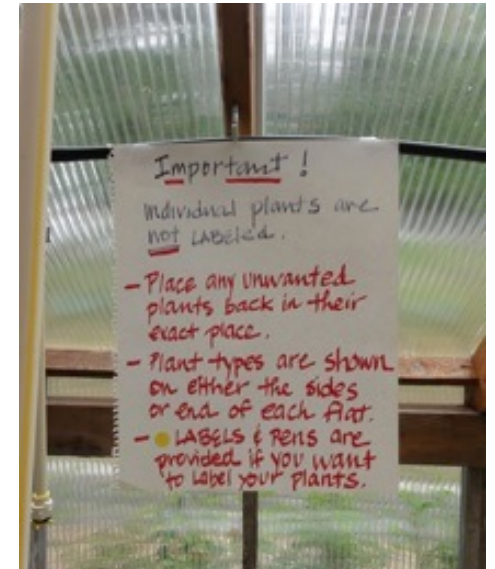 Important!
Individual plants are
not LABELED.
- Place any unwanted
plants back in their
exact place.
- Plant types are shown
on either the sides
or end of each flat.
- LABELS & Pens are
provided if you want
to label your plants.